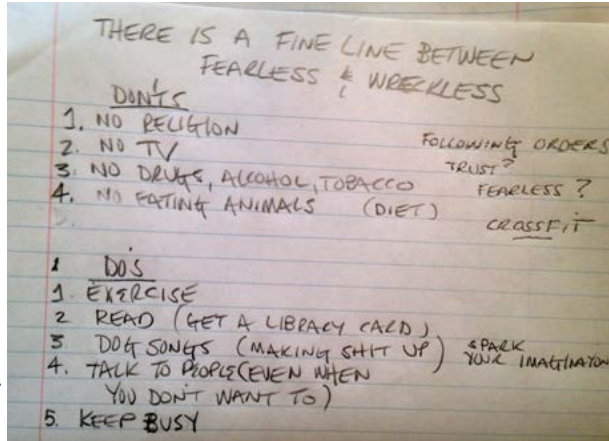 THERE IS A FINE LINE BETWEEN
FEARLESS & WRECKLESS
DON'TS
1. NO RELIGION
2. NO TV
3. NO DRUGS, ALCOHOL, TOBACCO
4. NO EATING ANIMALS (DIET)
5.
FOLLOWING ORDERS
TRUST?
FEARLESS?
CROSSFIT
DO'S
1. EXERCISE
2 READ (GET A LIBRARY CARD)
3 DOG SONGS (MAKING SHIT UP) SPARK
YOUR IMAGINATION
4. TALK TO PEOPLE (EVEN WHEN
YOU DON'T WANT TO)
5. KEEP BUSY